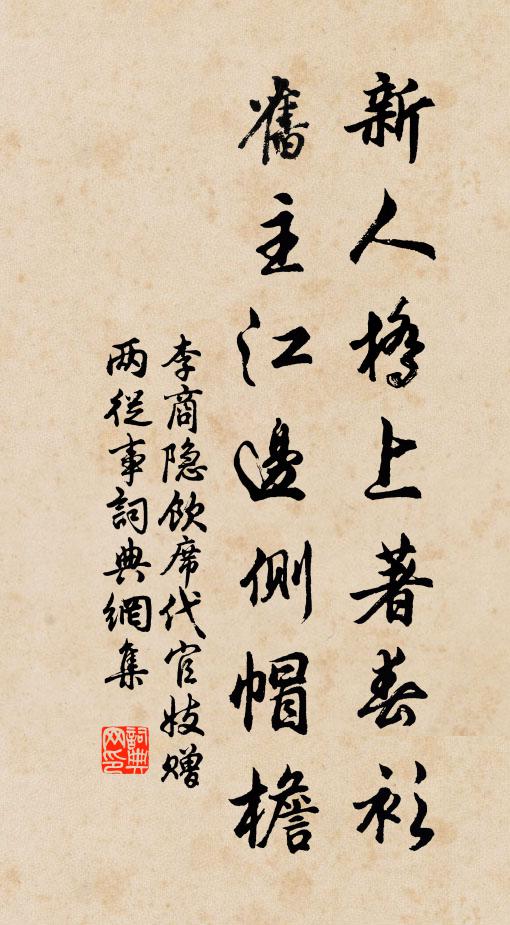 新人橋上著春衫
舊主江邊側帽檐
李商隐飲席代官妓贈
两從事詞典網集
詞典
网印